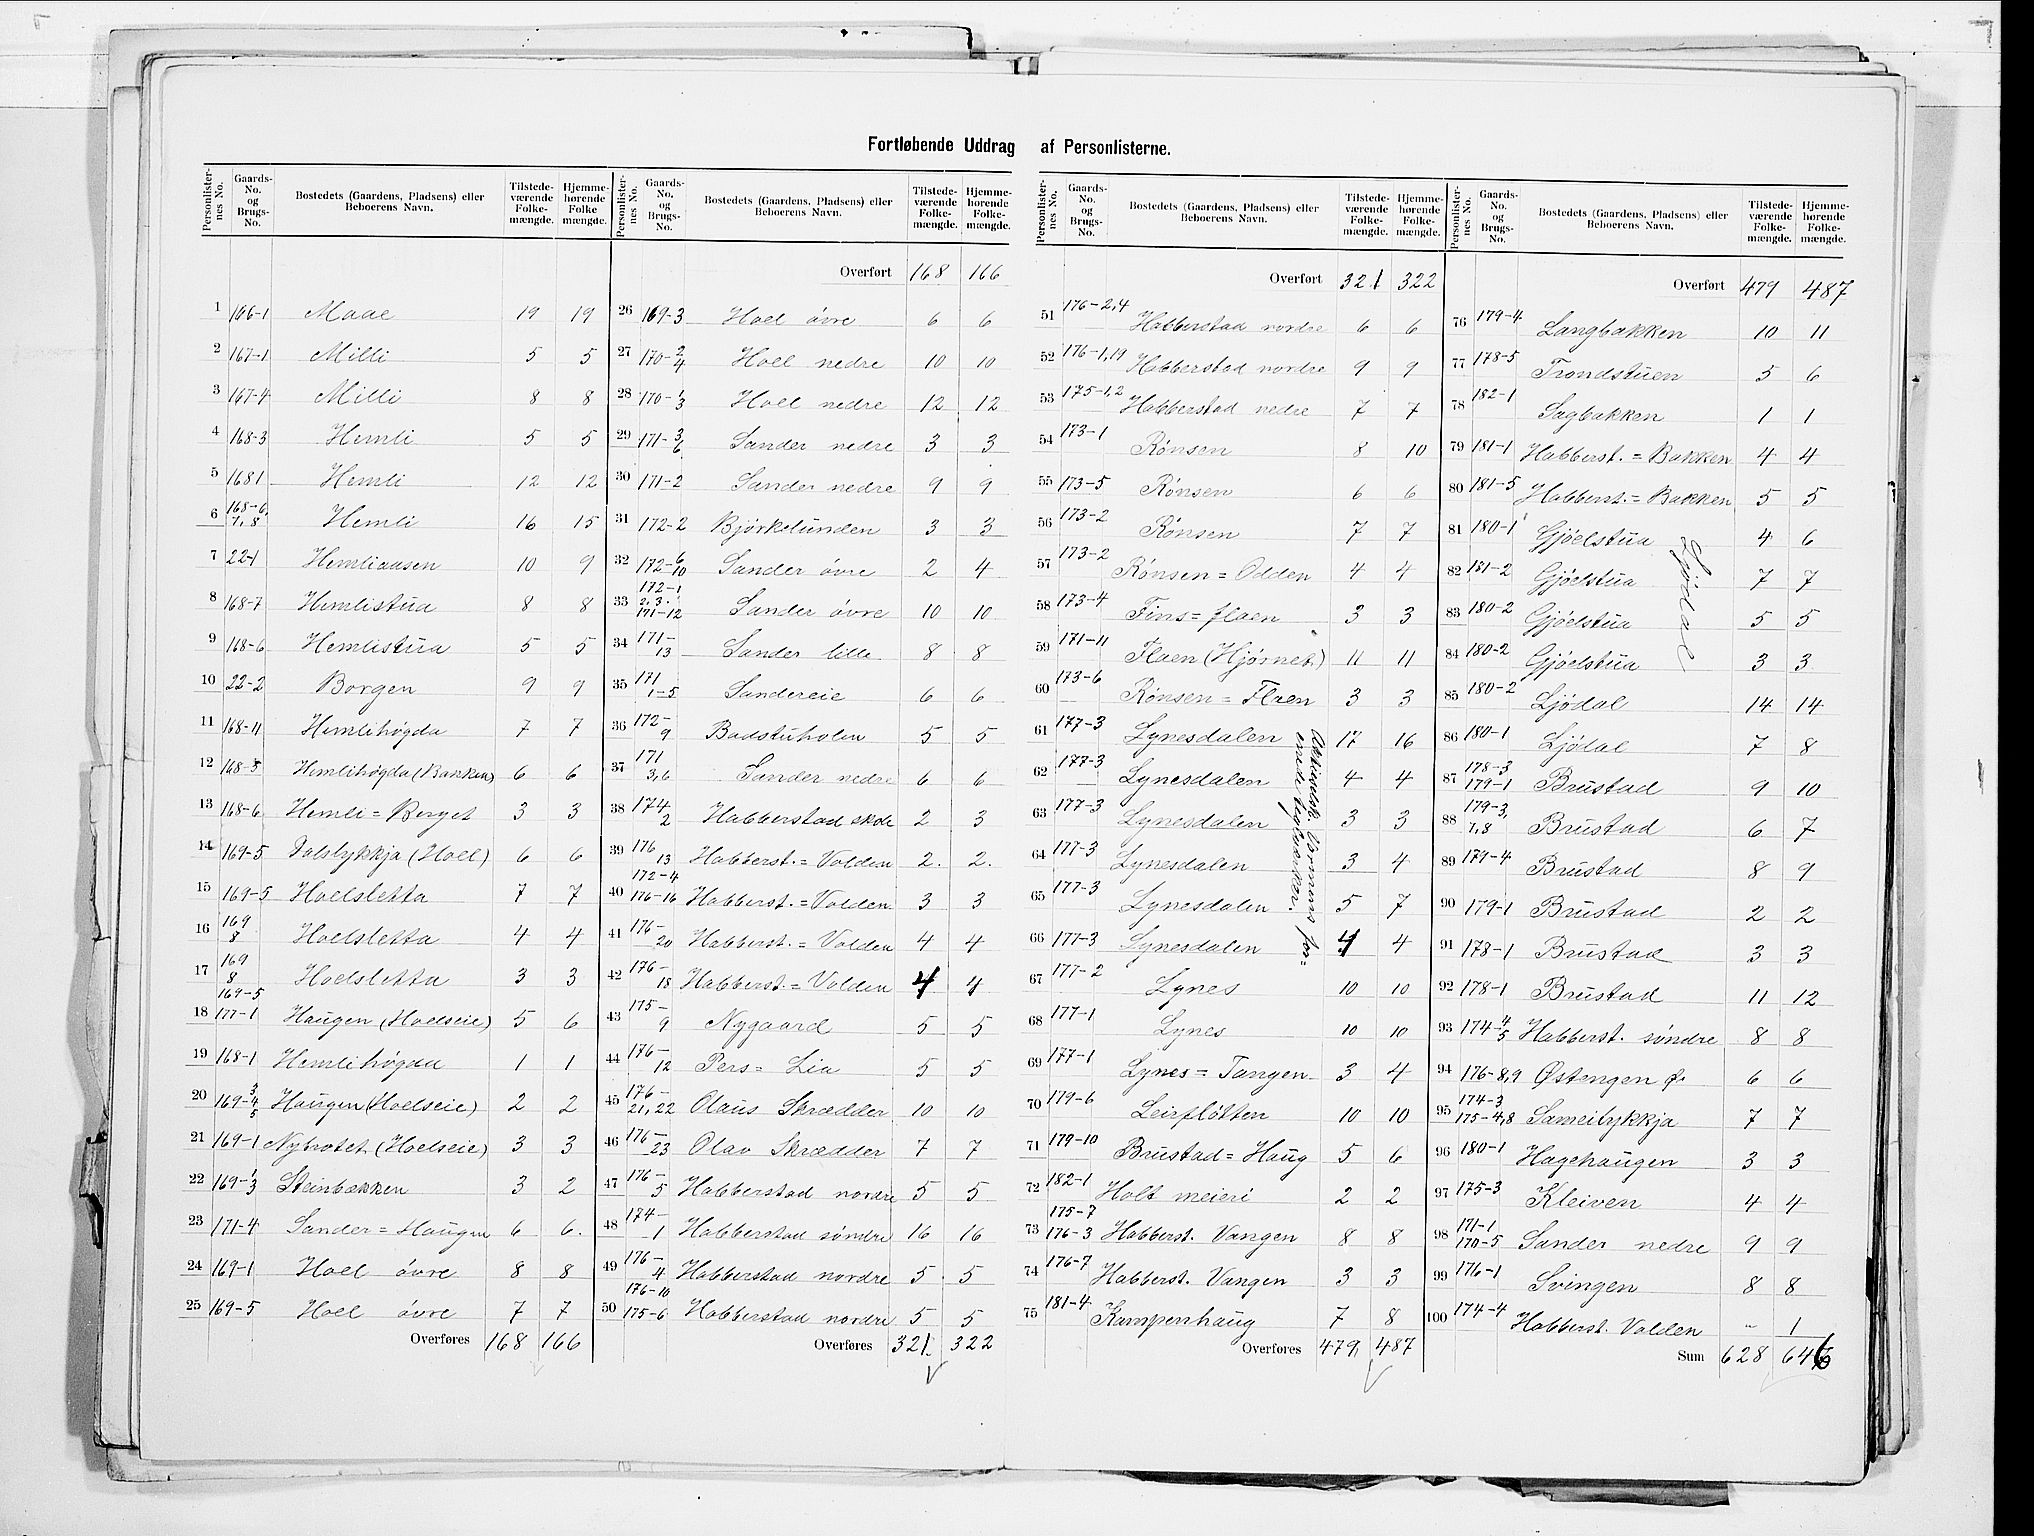 Fortløbende Uddrag af Personlisterne.
Personlister-nes No. | Gaards-No. og Brugs-No. | Bostedets (Gaardens, Pladsens) eller Beboerens Navn. | Tilstede-værende Folke-mængde. | Hjemme-hørende Folke mængde.
1 166-1 Maae 19 19
2 167-1 Milli 5 5
3 167-4 Milli 8 8
4 168-3 Hemli 5 5
5 1681 Hemli 12 12
6 168-6, 7, 8 Hemli 16 15
7 22-1 Hemliaasen 10 9
8 168-7 Hemlistua 8 8
9 168-6 Hemlistua 5 5
10 22-2 Borgen 9 9
11 168-11 Hemlihøgda 7 7
12 168-5 Hemlihøgda (Bakken) 6 6
13 168-6 Hemli = Berget 3 3
14 169-5 Dalslykkja (Hoel) 6 6
15 169-5 Hoelsletta 7 7
16 169 8 Hoelsletta 4 4
17 169 8 Hoelsletta 3 3
18 169-5 177-1 Haugen (Hoelseie) 5 6
19 168-1 Hemlihøgda 1 1
20 169-3 4 5 Haugen (Hoelseie) 2 2
21 169-1 Nybrotet (Hoelseie) 3 3
22 169-1 3 Steinbakken 3 2
23 171-4 Sander = Haugen 6 6.
24 169-1 Hoel øvre 8 8
25 169-5 Hoel øvre 7 7
Overføres 168 166
Personlister-nes No. | Gaards-No. og Brugs-No. | Bostedets (Gaardens, Pladsens) eller Beboerens Navn. | Tilstede-værende Folke-mængde. | Hjemme-hørende Folke-mængde.
Overført 168 166
26 169-3 Hoel øvre 6 6
27 170-2 4 Hoel nedre 10 10
28 170-1 3 Hoel nedre 12 12
29 171-3 6 Sander nedre 3 3
30 171-2 Sander nedre 9 9
31 172-2 Bjørkelunden 3 3
32 172-6 10 Sander øvre 2 4
33 172-1 2, 3. 171-12 Sander øvre 10 10
34 171-13 Sander lille 8 8
35 171 1-5 Sandereie 6 6
36 172-9 Badstuholen 5 5
37 171 3,6 Sander nedre 6 6
38 174 2 Habberstad skole 2 3
39 176 13 Habberst. = Volden 2. 2.
40 172-4 176-16 Habberst. = Volden 3 3
41 176-20 Habberst. = Volden 4 4
42 176-18 Habberst. = Volden 4 4
43 175-9 Nygaard 5 5
44 176-12 Pers = Lia 5 5
45 176-21, 22 Olaus Skrædder 10 10
46 176-23 Olav Skrædder 7 7
47 176-5 Habberstad nordre 5 5
48 174-1 Habberstad søndre 16 16
49 176-4 Habberstad nordre 5 5
50 176-10 175-6 Habberstad nordre 5 5
Overføres 321. 322
Personlister-nes No. | Gaards-No. og Brugs-No. | Bostedets (Gaardens, Pladsens) eller Beboerens Navn. | Tilstede-værende Folke-mængde. | Hjemme-hørende Folke-mængde.
Overført 321 322
51 176-2,4 Habberstad nordre 6 6
52 176-1,19 Habberstad nordre 9 9
53 175-1,2 Habberstad nedre 7 7
54 173-1 Rønsen 8 10
55 173-5 Rønsen 6 6
56 173-2 Rønsen 7 7
57 173-2 Rønsen = Odden 4 4
58 173-4 Fins = flaen 3 3
59 171-11 Flaen (Hjørnet) 11 11
60 173-6 Rønsen = Flaen 3 3
61 177-3 Lynesdalen 17 16
62 177-3 Lynesdalen 4 4
63 177-3 Lynesdalen 3 3
64 177-3 Lynesdalen 3 4
65 177-3 Lynesdalen 5 7
66 177-3 Lynesdalen 4 4
67 177-2 Lynes 10 10
68 177-1 Lynes 10 10
69 177-1 Lynes = Tangen 3 4
70 179-6 Leirfløtten 10 10
71 179-10 Brustad = Haug 5 6
72 182-1 Holt meieri 2 2
73 175-7 176-3 Habberst. Vangen 8 8
74 176-7 Habberst. Vangen 3 3
75 181-4 Kampenhaug 7 8
Overføres 479, 487
Personlister-nes No. | Gaards-No. og Brugs-No. | Bostedets (Gaardens, Pladsens) eller Beboerens Navn. | Tilstede-værende Folke-mængde. | Hjemme-hørende Folke-mængde.
Overført 479 487
76 179-4 Langbakken 10 11
77 178-5 Trondstuen 5 6
78 182-1 Sagbakken 1 1
79 181-1 Habberst. = Bakken 4 4
80 181-5 Habberst. = Bakken 5 5
81 180-1 Gjøelstua 4 6
82 181-2 Gjøelstua 7 7
83 180-2 Gjøelstua 5 5
84 180-2 Gjøelstua 3 3
Ljødal
85 180-2 Ljødal 14 14
86 180-1 Ljødal 7 8
87 178-3 179-1 Brustad 9 10
88 179-3, 7, 8 Brustad 6 7
89 179-4 Brustad 8 9
90 179-1 Brustad 2 2
91 178-1 Brustad 3 3
92 178-1 Brustad 11 12
93 174-4 5 Habberst. søndre 8 8
94 176-8,9 Østengen Ø. 6 6
95 174-3 175-4,8 Sameilykkja 7 7
96 180-1 Hagehaugen 3 3
97 175-3 Kleiven 4 4
98 171-1 170-5 Sander nedre 9 9
99 176-1 Svingen 8 8
100 174-4 Habberst. Volden " 1
Sum 628 646